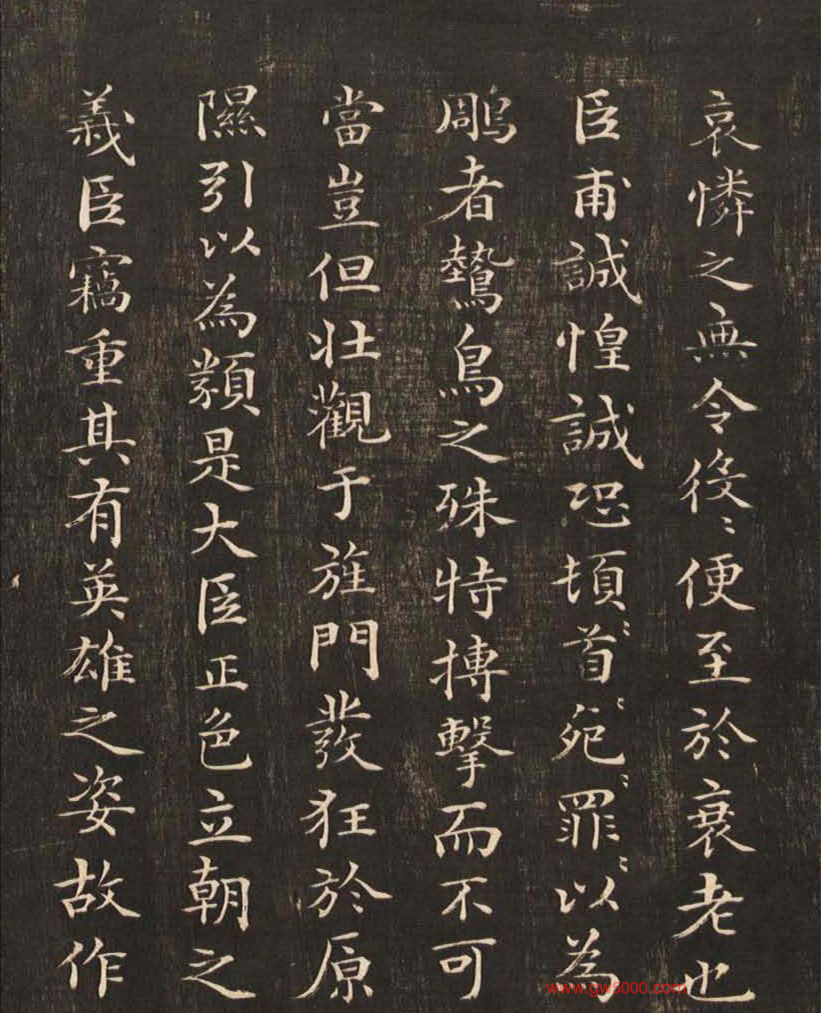 哀憐之無令役〻便至於衰老也
臣甫誠惶誠恐頓〻首〻死〻罪〻以為
鵰者鷙鳥之殊特搏擊而不可
當豈但壯觀于旌門發狂於原
隰引以為類是大臣正色立朝之
義臣竊重其有英雄之姿故作
www.gw5000.com